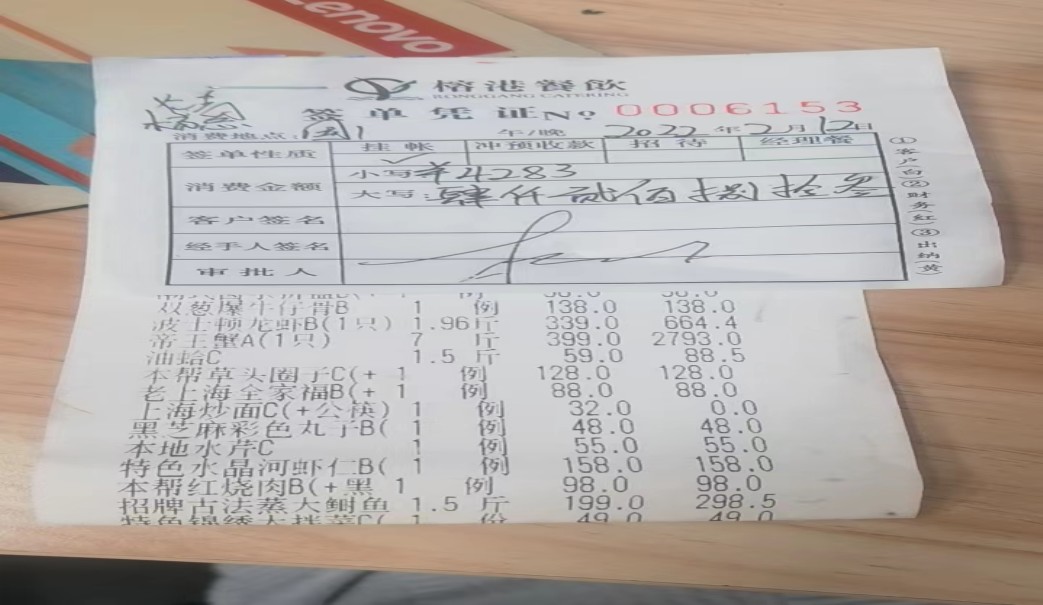 Lenovo
榕港餐飲
RONGGANG CATERING
签单凭证 № 0006153
消费地点: 午/晚 2022年2月12日
签单性质 挂帐 冲预收款 招待 经理餐
✓
消费金额 小写 ¥4283
大写: 肆仟贰佰捌拾叁
客户签名
经手人签名
审批人
①客户(白)②财务(红)③出纳(黄
双葱爆牛仔骨B 1 例 138.0 138.0
波士顿龙虾B(1只) 1.96斤 339.0 664.4
帝王蟹A(1只) 7 斤 399.0 2793.0
油蛤C 1.5 斤 59.0 88.5
本帮草头圈子C(+ 1 例 128.0 128.0
老上海全家福B(+ 1 例 88.0 88.0
上海炒面C(+公筷) 1 例 32.0 0.0
黑芝麻彩色丸子B( 1 例 48.0 48.0
本地水芹C 1 例 55.0 55.0
特色水晶河虾仁B( 1 例 158.0 158.0
本帮红烧肉B(+黑 1 例 98.0 98.0
招牌古法蒸大鲥鱼 1.5 斤 199.0 298.5
特色锦绣大拌菜C( 1 份 49.0 49.0